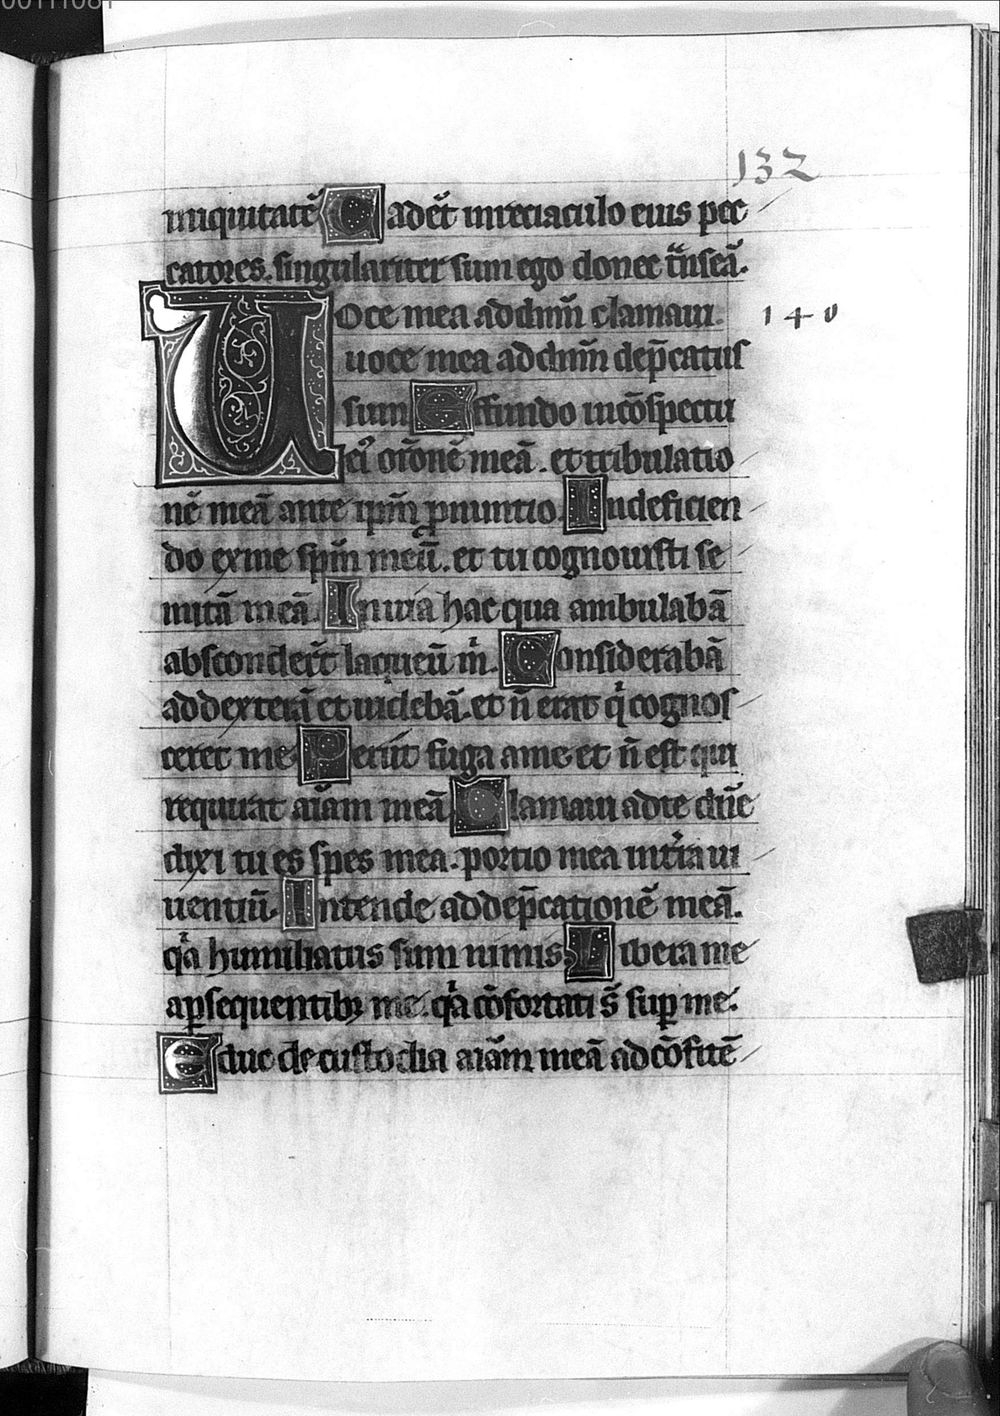 00111081
132
iniquitatē Cadēt inreciaculo eius pec
catores. singulariter sum ego donec trāseā.
Uoce mea addn̄m clamaui.
140
uoce mea addn̄m dep̄catus
sum Effundo incōspectu
ei᷒ or̄onē meā. et tribulatio
nē meā ante ip̄m ꝓnuntio. Indeficien
do exme sp̄m meū. et tu cognouisti se
mitā meā. Inuia hac qua ambulabā
absconder̄t laqueū m̄. Considerabā
addexterā et uidebā. et n̄ erat qͥ cognos
ceret me Periit fuga ame et n̄ est qui
requirat aīam meā Clamaui adte dn̄e
dixi tu es spes mea. portio mea int̄ra ui
uentiū. Intende addep̄cationē meā.
qͣa humiliatus sum nimis Libera me
apsequentibꝫ me. qͣa cōfortati s̄ suꝑ me.
Educ de custodia aīam meā adcōfitē